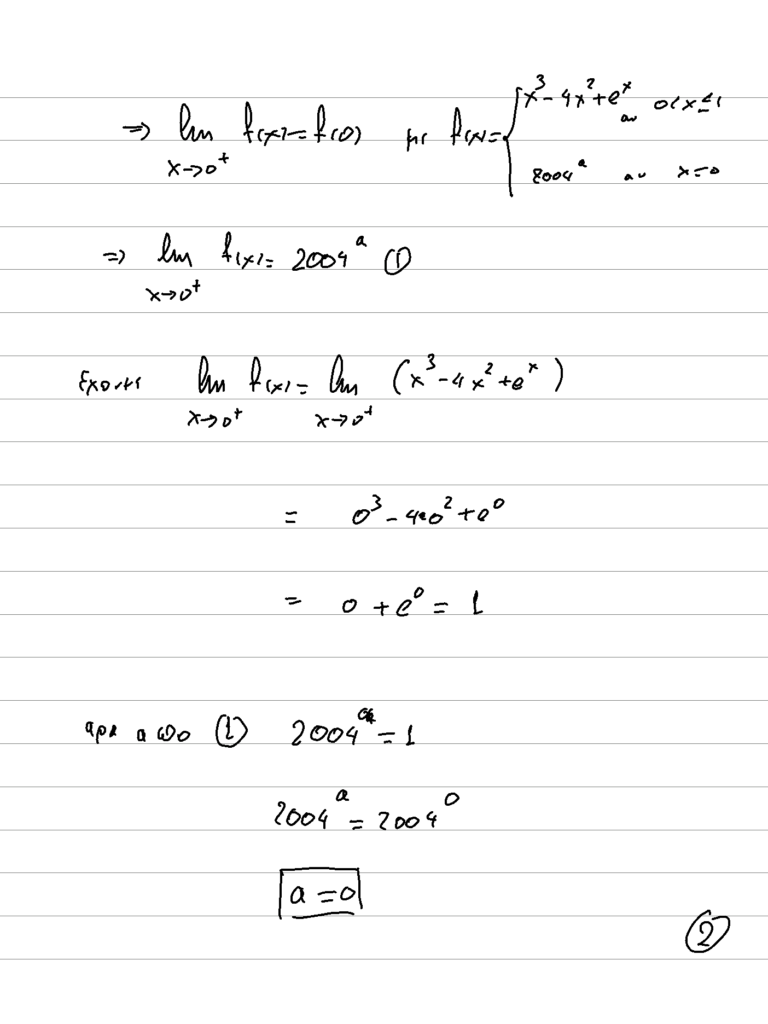 ⇒ lim f(x) = f(0) με f(x) = { x³ - 4x² + eˣ αν 0<x≤1
x→0⁺ 2004ᵃ αν x=0
⇒ lim f(x) = 2004ᵃ ①
x→0⁺
Έχουμε lim f(x) = lim (x³ - 4x² + eˣ)
x→0⁺ x→0⁺
= 0³ - 4·0² + e⁰
= 0 + e⁰ = 1
αρα απο ① 2004ᵃ = 1
2004ᵃ = 2004⁰
a = 0
②